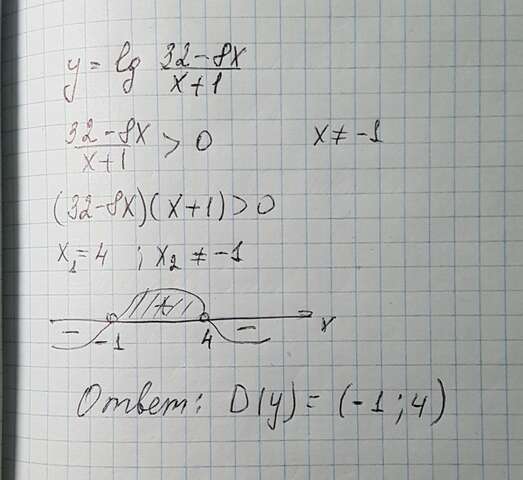 y = lg (32-8x)/(x+1)
(32-8x)/(x+1) > 0 x ≠ -1
(32-8x)(x+1)>0
x₁=4 ; x₂ ≠ -1
- + - x
-1 4
Ответ: D(y) = (-1;4)